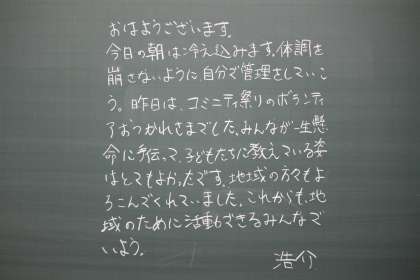 おはようございます。
今日の朝は冷え込みます。体調を
崩さないように自分で管理をしていこ
う。昨日は、コミニティ祭りのボランティ
アおつかれさまでした。みんなが一生懸
命に手伝って、子どもたちに教えている姿
はとてもよかったです。地域の方々もよ
ろこんでくれていました。これからも、地
域のために活動できるみんなで
いよう。
浩介